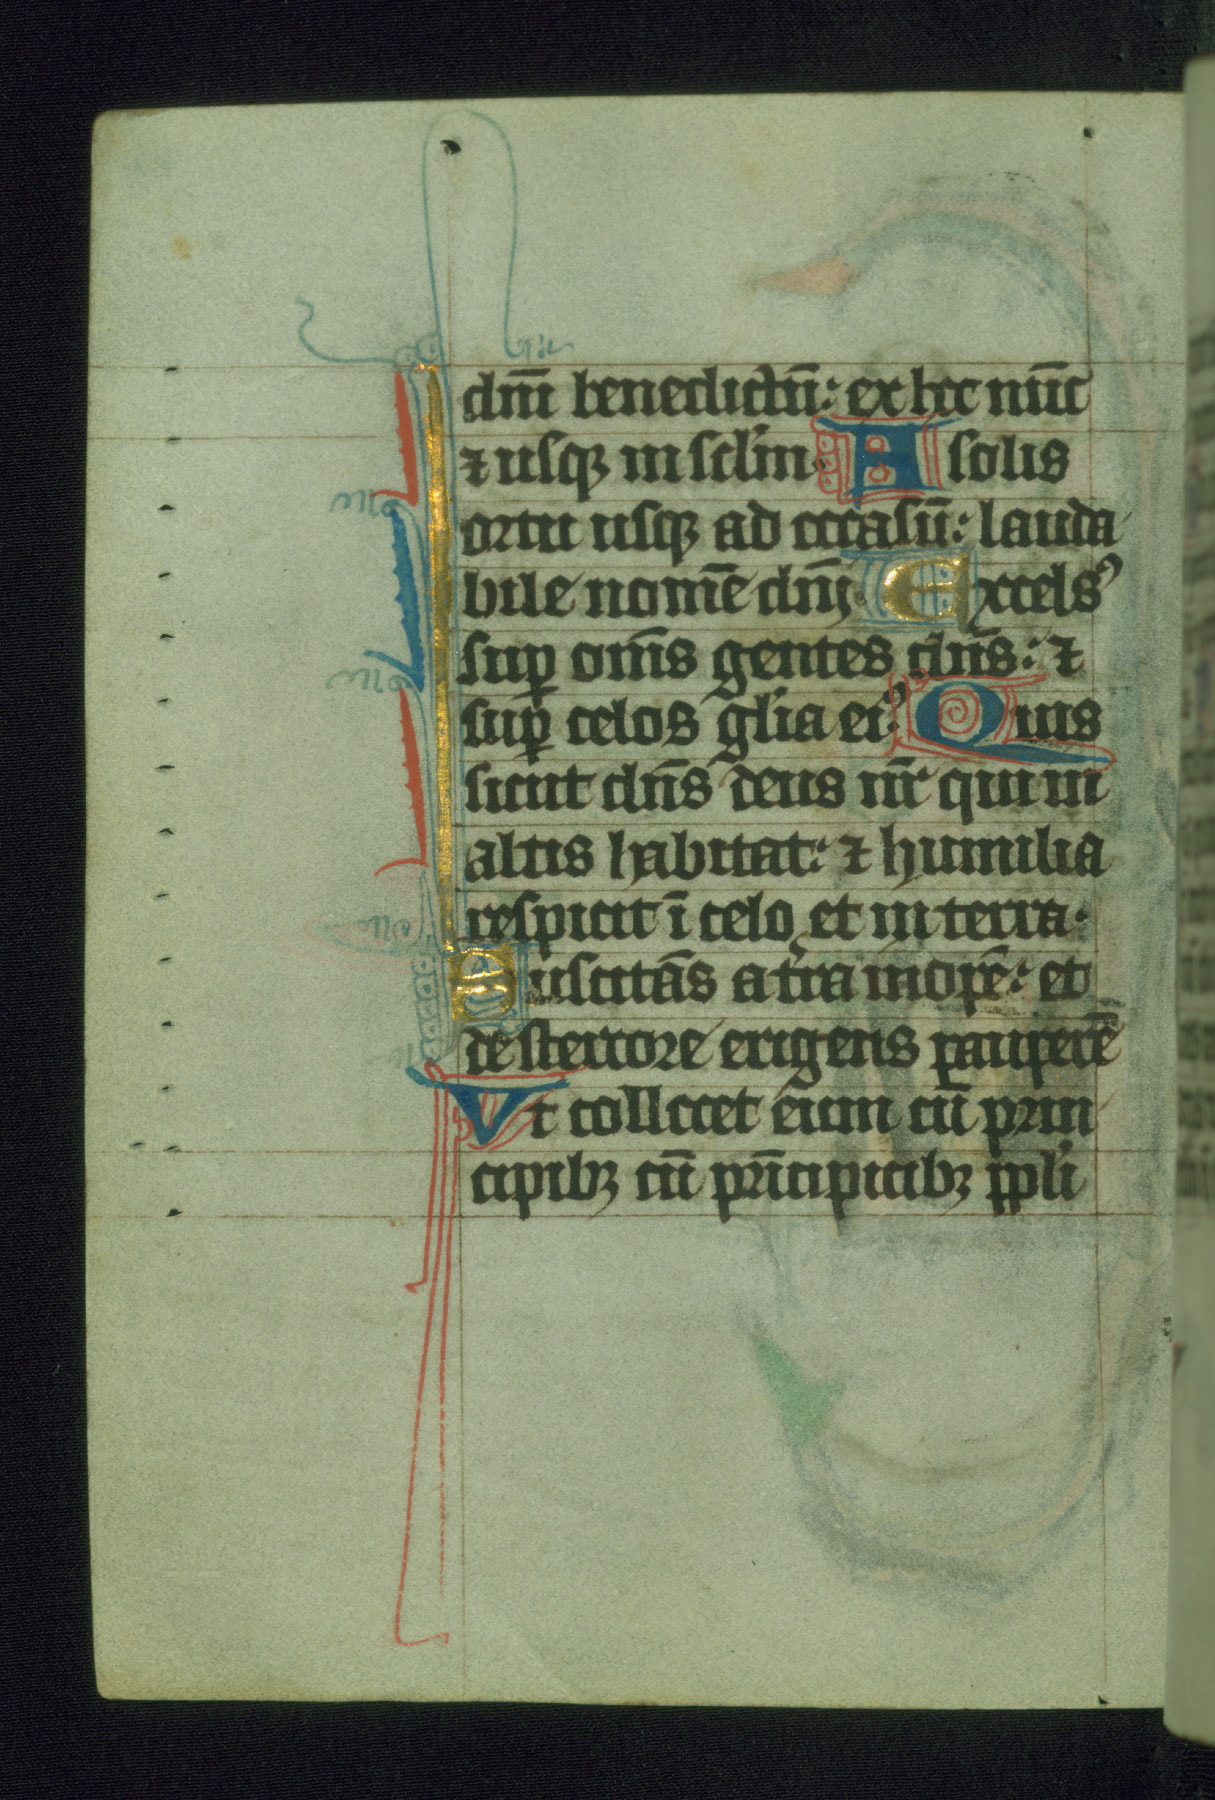 dnm̄ benedictū: ex hoc nūc
⁊ usqꝫ in sclm̄ A solis
ortu usqꝫ ad occasū: lauda
bile nomē dnī Excelsꝰ
suꝑ om̄s gentes dn̄s: ⁊
suꝑ celos glīa eiꝰ Quis
sicut dn̄s deus nr̄ qui in
altis habitat: ⁊ humilia
respicit ī celo et in terra.
Suscitās a tr̄ra inopē: et
de stercore erigens pauperē
Vt collocet eum cū prin
cipibꝫ cū prīcipicibꝫ ppl̄i